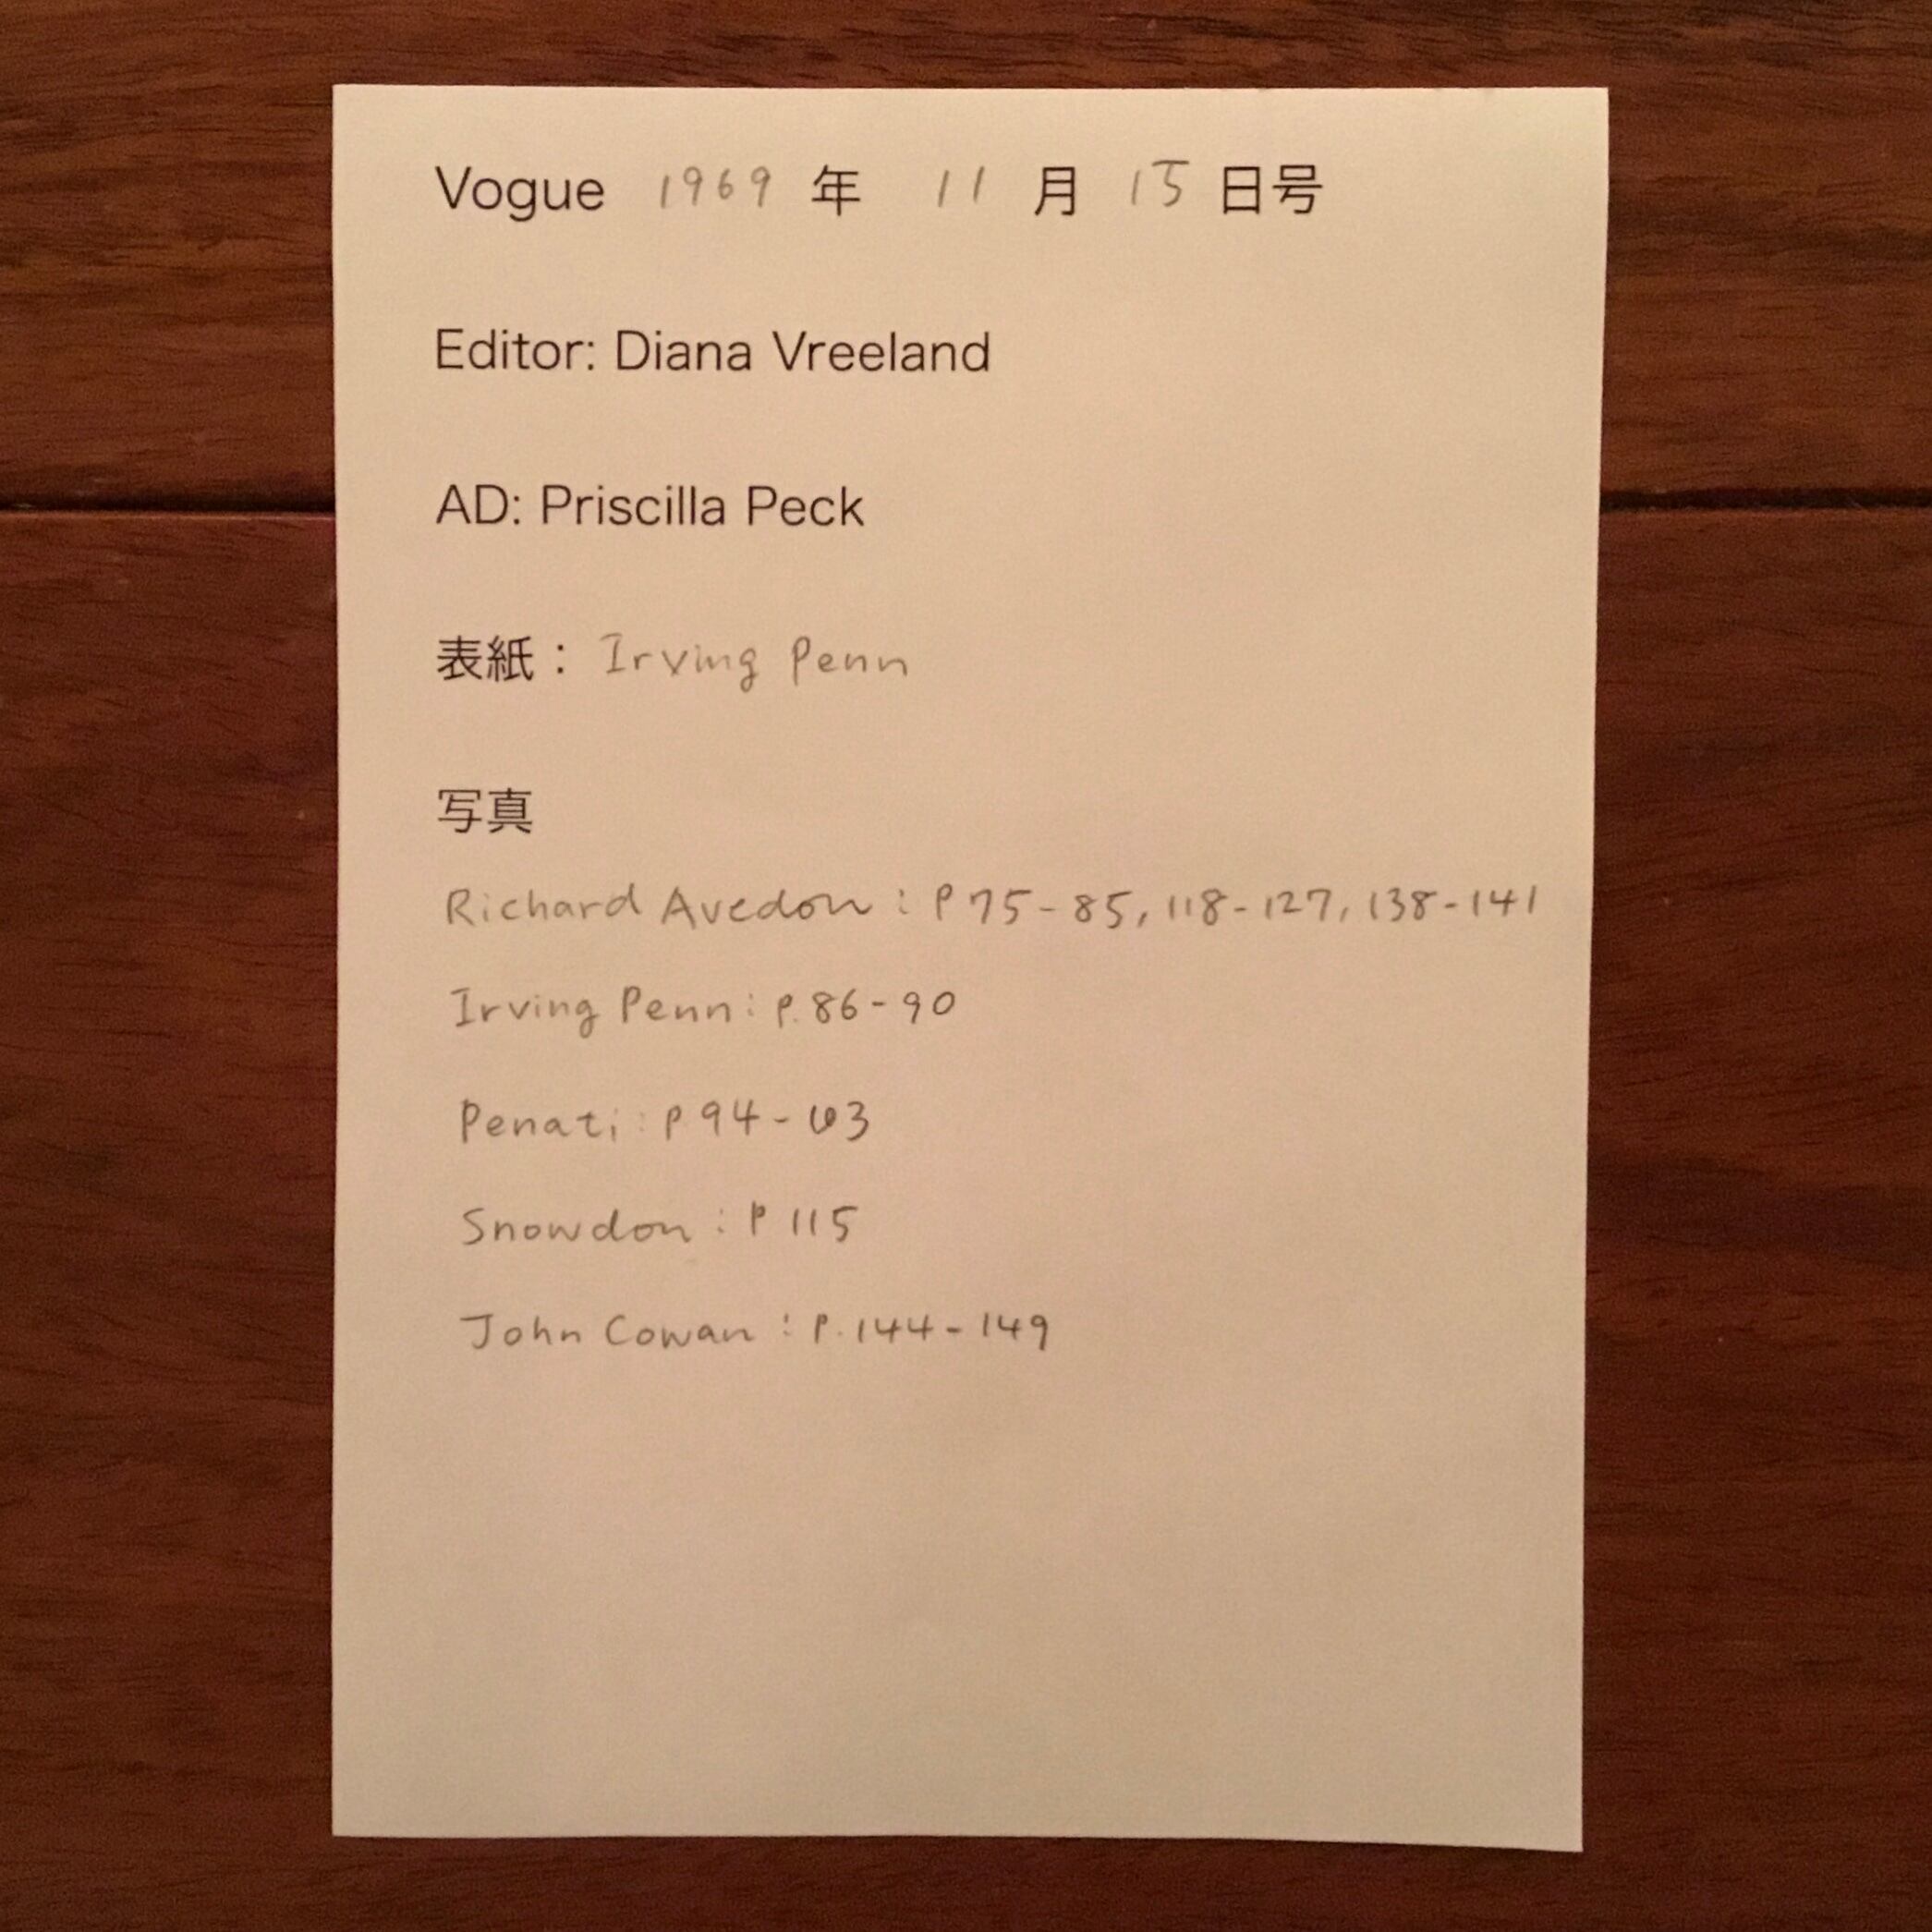 Vogue 1969 年 11 月 15 日号
Editor: Diana Vreeland
AD: Priscilla Peck
表紙： Irving Penn
写真
Richard Avedon : P 75-85, 118-127, 138-141
Irving Penn : p. 86-90
Penati : p 94-103
Snowdon : P 115
John Cowan : P. 144-149